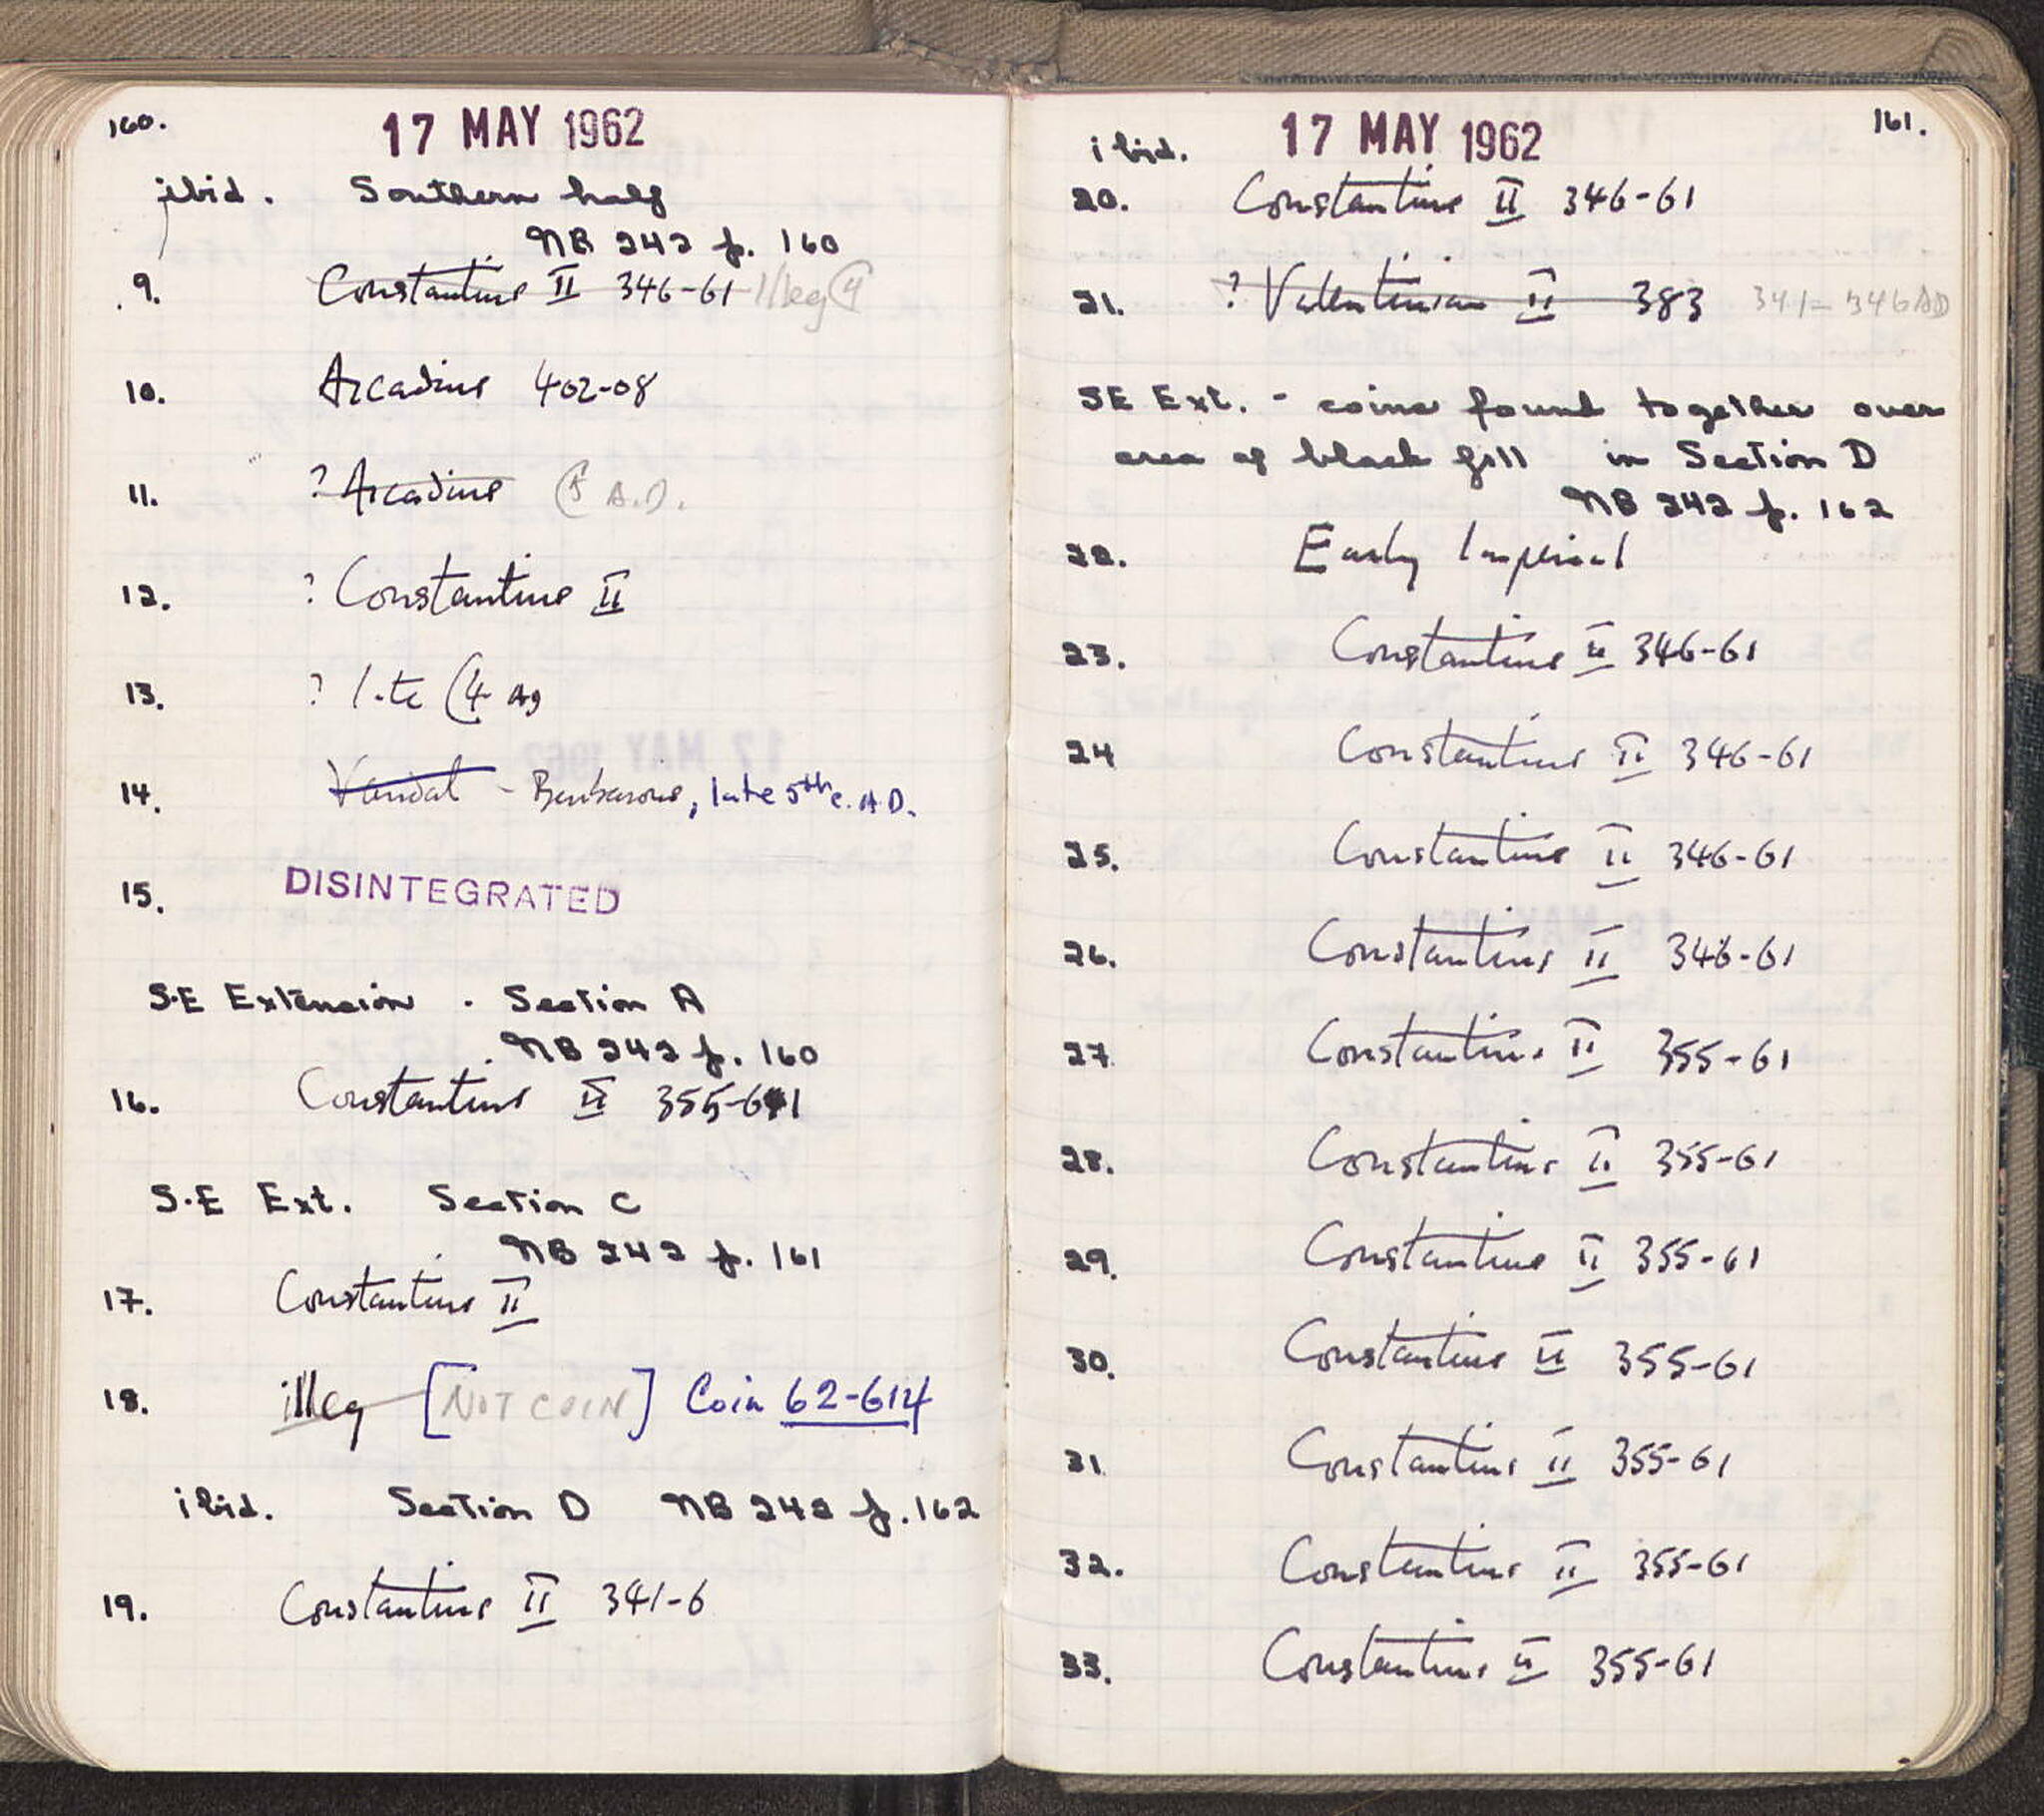 160.
17 MAY 1962
ibid. Southern half
NB 242 p. 160
9. Constantius II 346-61 illeg (4
10. Arcadius 402-08
11. ? Arcadius (5 A.D.
12. ? Constantius II
13. ? late (4 AD
14. Vandal - Barbarous, late 5th c. A.D.
15. DISINTEGRATED
S.E Extension . Section A
NB 242 p. 160
16. Constantius II 355-61
S.E Ext. Section C
NB 242 p. 161
17. Constantius II
18. illeg [NOT COIN] Coin 62-614
ibid. Section D NB 242 p. 162
19. Constantius II 341-6
161.
ibid. 17 MAY 1962
20. Constantius II 346-61
21. ? Valentinian II 383 341-346 AD
SE Ext. - coins found together over
area of black fill in Section D
NB 242 p. 162
22. Early Imperial
23. Constantius II 346-61
24 Constantius II 346-61
25. Constantius II 346-61
26. Constantius II 346-61
27 Constantius II 355-61
28. Constantius II 355-61
29. Constantius II 355-61
30. Constantius II 355-61
31 Constantius II 355-61
32. Constantius II 355-61
33. Constantius II 355-61